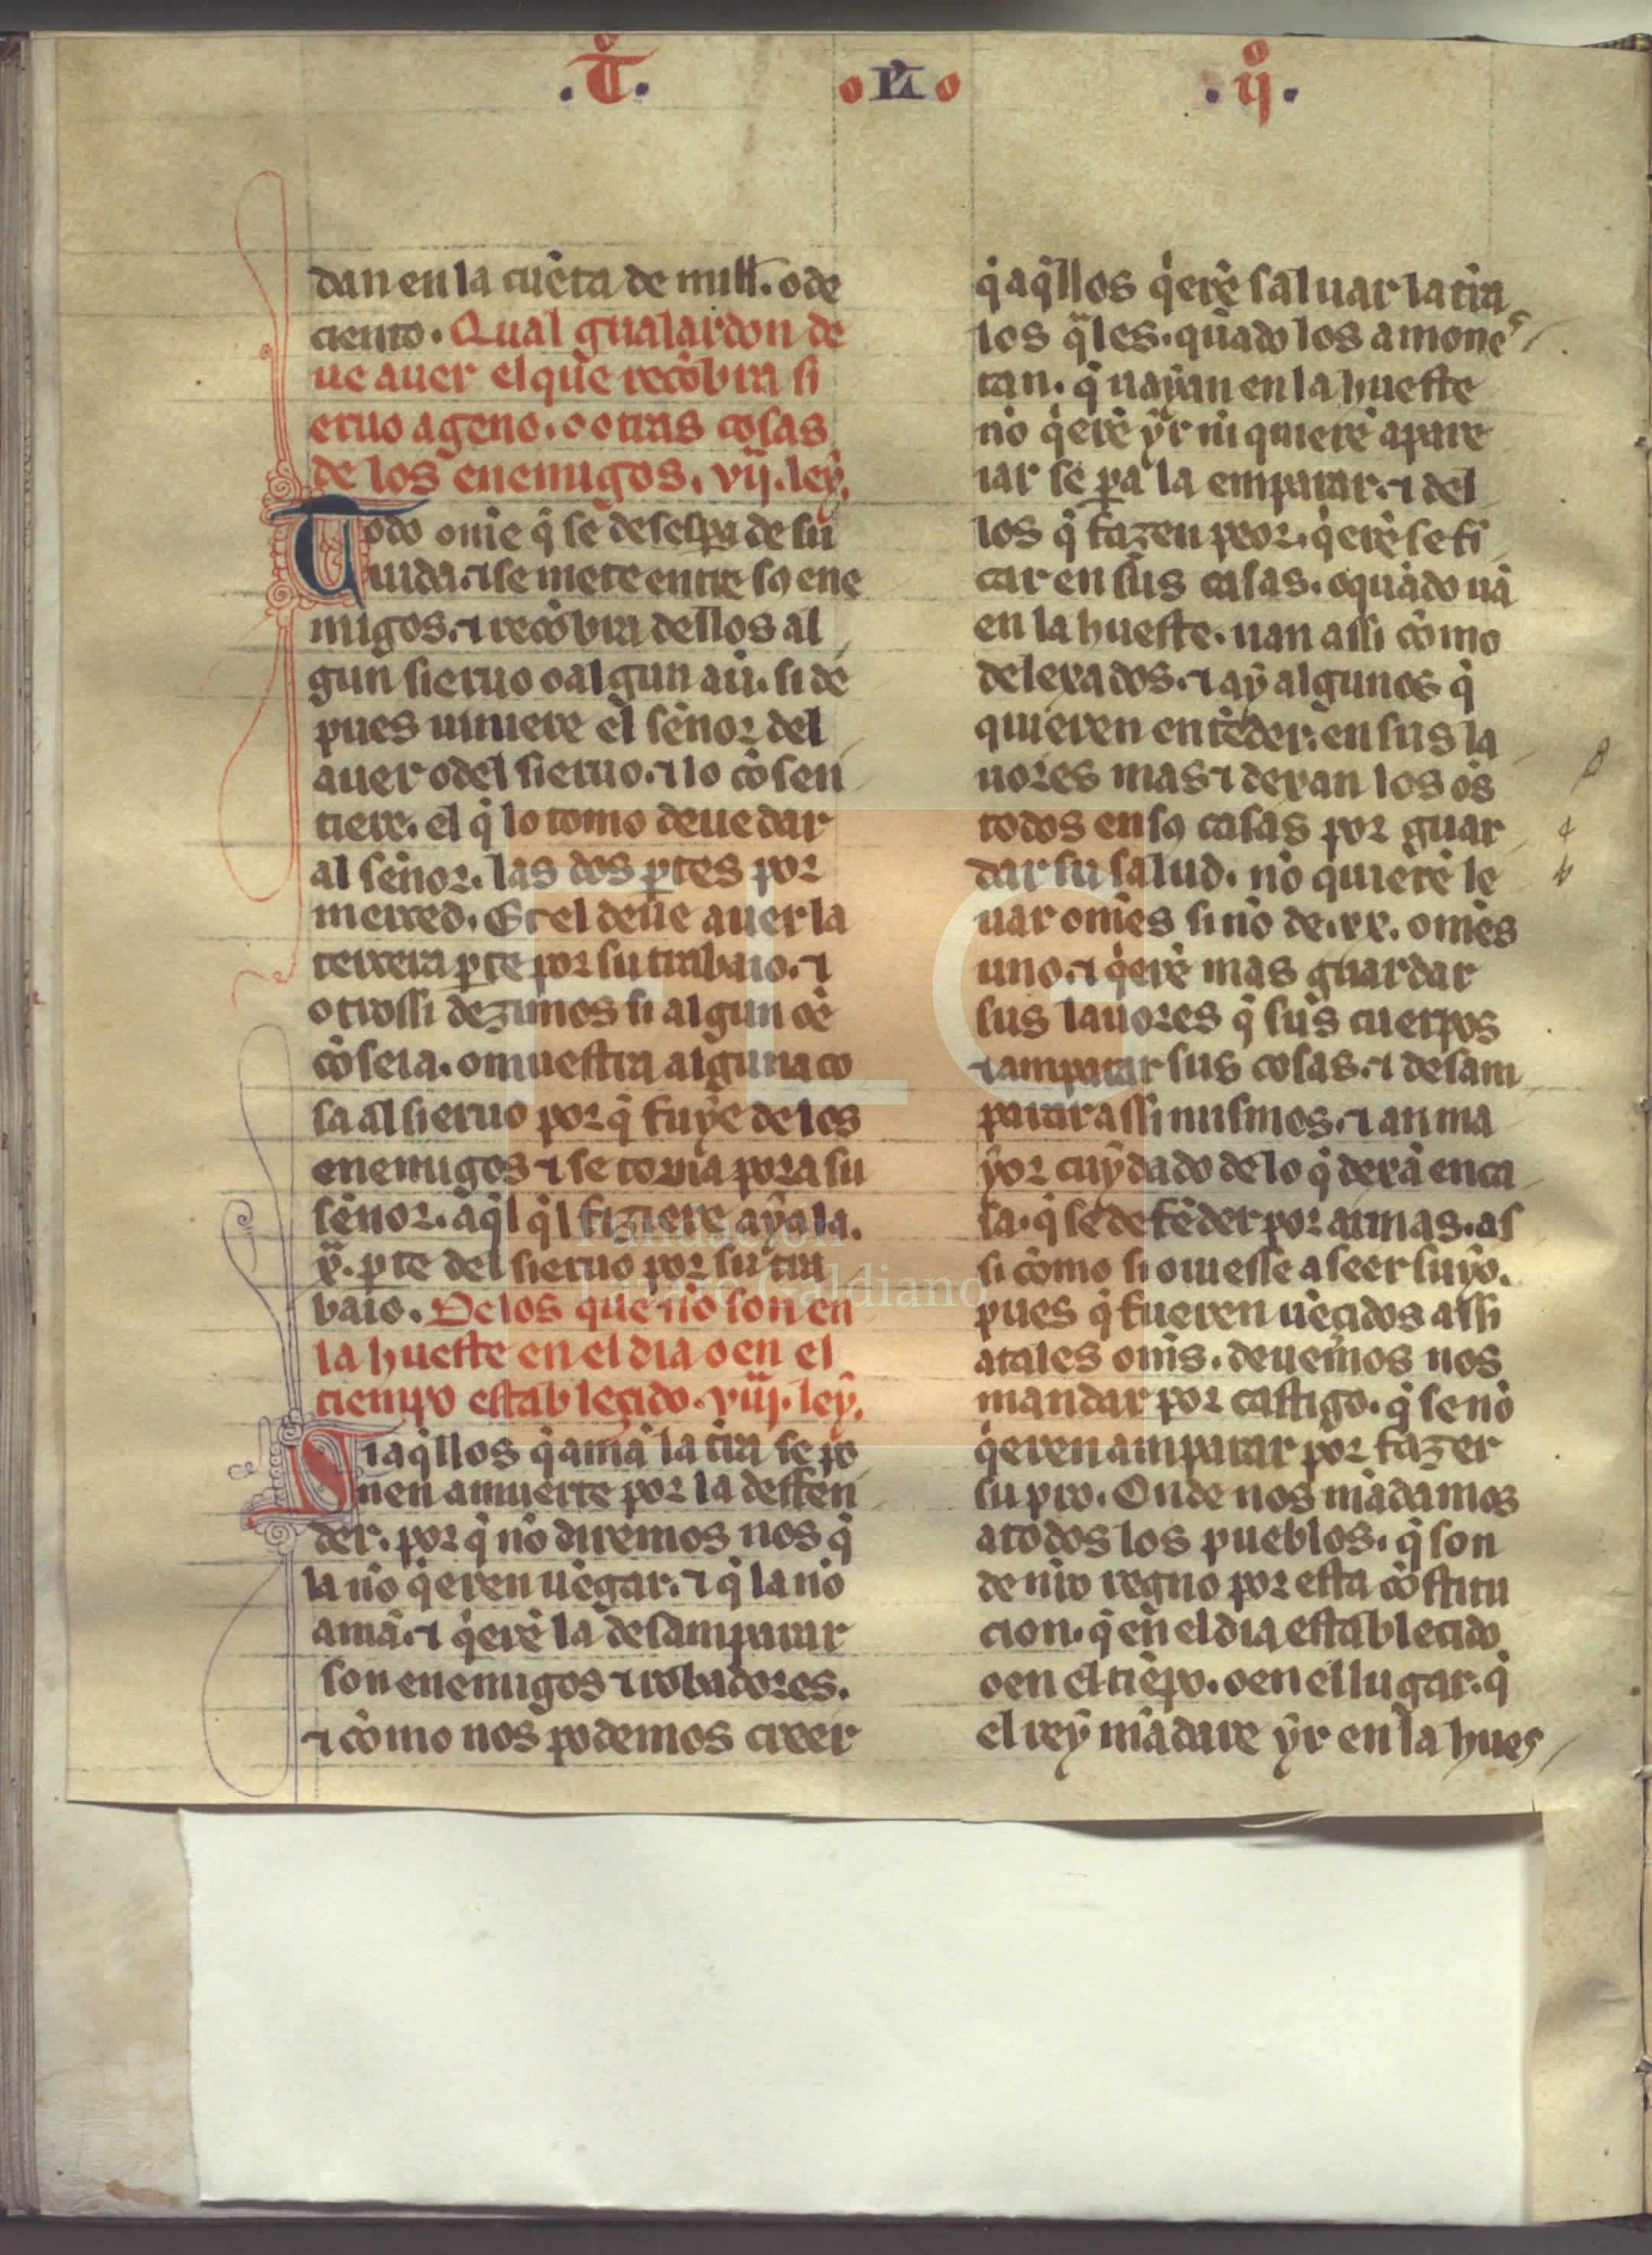 .T͛. oIXo .ıj̊.
dan en la cuẽta de mill̃. o de
ciento. Qual gualardon de
ue auer el que recobra si
eruo ageno. o otras cosas
de los enemigos. vij. ley.
Todo om̃e q̇ se desesꝑa de su
uida. ⁊ se mete entre sꝯ ene
migos. ⁊ recobra dellos al
gun sieruo o algun auẽ. si de
pues uiniere el sẽnor del
auer o del sieruo. ⁊ lo cõsen
tiere. el q̇ lo tomo deue dar
al señor. las dos ꝑtes por
merced. Et el deue auer la
tercera ꝑte por su trabaio. ⁊
otrossi dezimos si algun oẽ
cõseia. o muestra alguna co
sa al sieruo por q̇ fuye de los
enemigos ⁊ se torna pora su
señor. aq̇l q̇l fiziere aya la.
xͣ. ꝑte del sieruo por su tra
baio. De los que no son en
la hueste en el dia o en el
tiempo establecido. viij. ley.
Si aq̇llos q̇ amã la tr̃ra se po
nen a muerte por la deffen
der. por q̇ no diremos nos q̇
la no q̇eren uẽgar. ⁊ q̇ la no
amã. ⁊ q̇erẽ la desamparar
son enemigos ⁊ robadores.
⁊ cõmo nos podemos creer
q̇ aq̇llos q̇erẽ saluar la tr̃ra
los q̃les. quãdo los amones
tan. q̇ uayan en la hueste
no q̇erẽ yr ni quierẽ apare
iar se ꝑa la emparar. ⁊ del
los q̇ fazen peor. q̇erẽ se fi
car en sus casas. o quãdo uã
en la hueste. uan assi cõmo
delexados. ⁊ ay algunos q̇
quieren entẽder en sus la
uores mas ⁊ dexan los oẽs
todos en sꝯ casas por guar
dar su salud. no quierẽ le
uar om̃es si no de .xx. om̃es
uno. ⁊ q̇erẽ mas guardar
sus lauores q̇ sus cuerpos
⁊ amparar sus cosas. ⁊ desam
parar assi mismos. ⁊ an ma
yor cuydado de lo q̇ dexã en ca
sa. q̇ se defẽder por armas. as
si cõmo si ouiesse a seer suyo.
pues q̇ fueren uẽcidos assi
atales om̃s. deuemos nos
mandar por castigo. q̇ se no
q̇eren amparar por fazer
su pro. Onde nos mãdamos
a todos los pueblos. q̇ son
de nr̃o regno por esta cõstitu
cion. q̇ en el dia establecido
o en el tiẽpo. o en el lugar. q̇
el rey mãdare yr en la hues
Fundación
Lázaro Galdiano